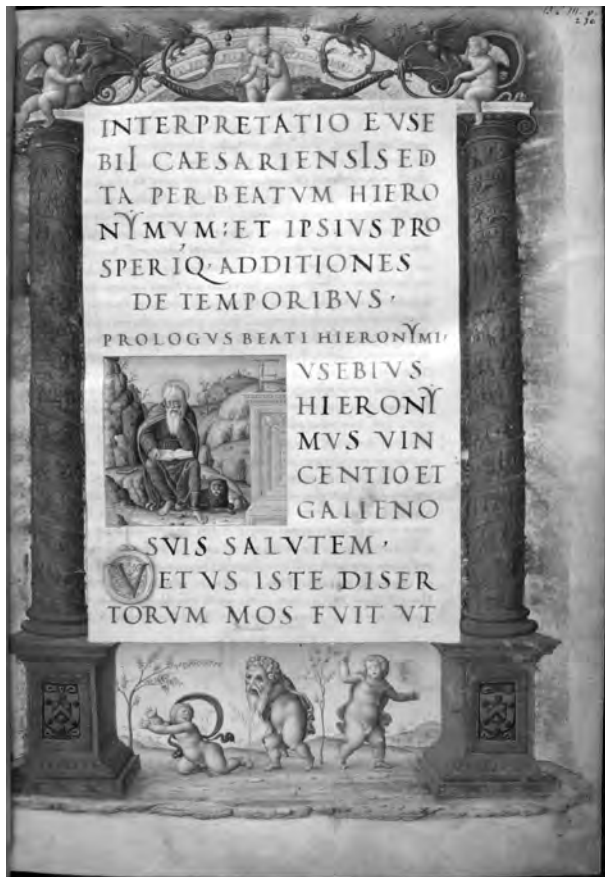 INTERPRETATIO EVSE
BII CAESARIENSIS EDI
TA PER BEATVM HIERO
NYMVM: ET IPSIVS PRO
SPERIQ· ADDITIONES
DE TEMPORIBVS·
PROLOGVS BEATI HIERONYMI·
VSEBIVS
HIERONY
MVS VIN
CENTIO ET
GALIENO
SVIS SALVTEM·
VETVS ISTE DISER
TORVM MOS FVIT VT